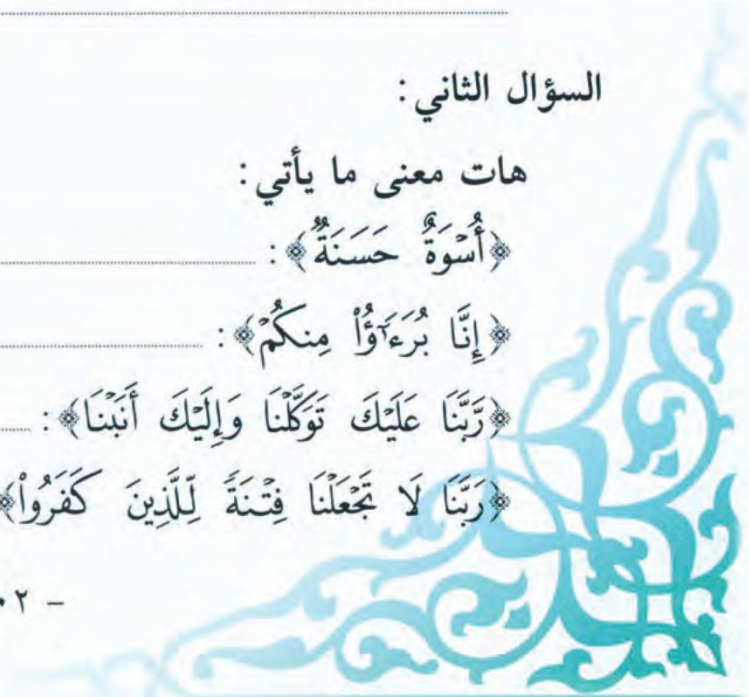 السؤال الثاني:
هات معنى ما يأتي:
﴿أُسْوَةٌ حَسَنَةٌ﴾:
﴿إِنَّا بُرَءَٰٓؤُاْ مِنكُمْ﴾:
﴿رَّبَّنَا عَلَيْكَ تَوَكَّلْنَا وَإِلَيْكَ أَنَبْنَا﴾:
﴿رَبَّنَا لَا تَجْعَلْنَا فِتْنَةً لِّلَّذِينَ كَفَرُواْ﴾